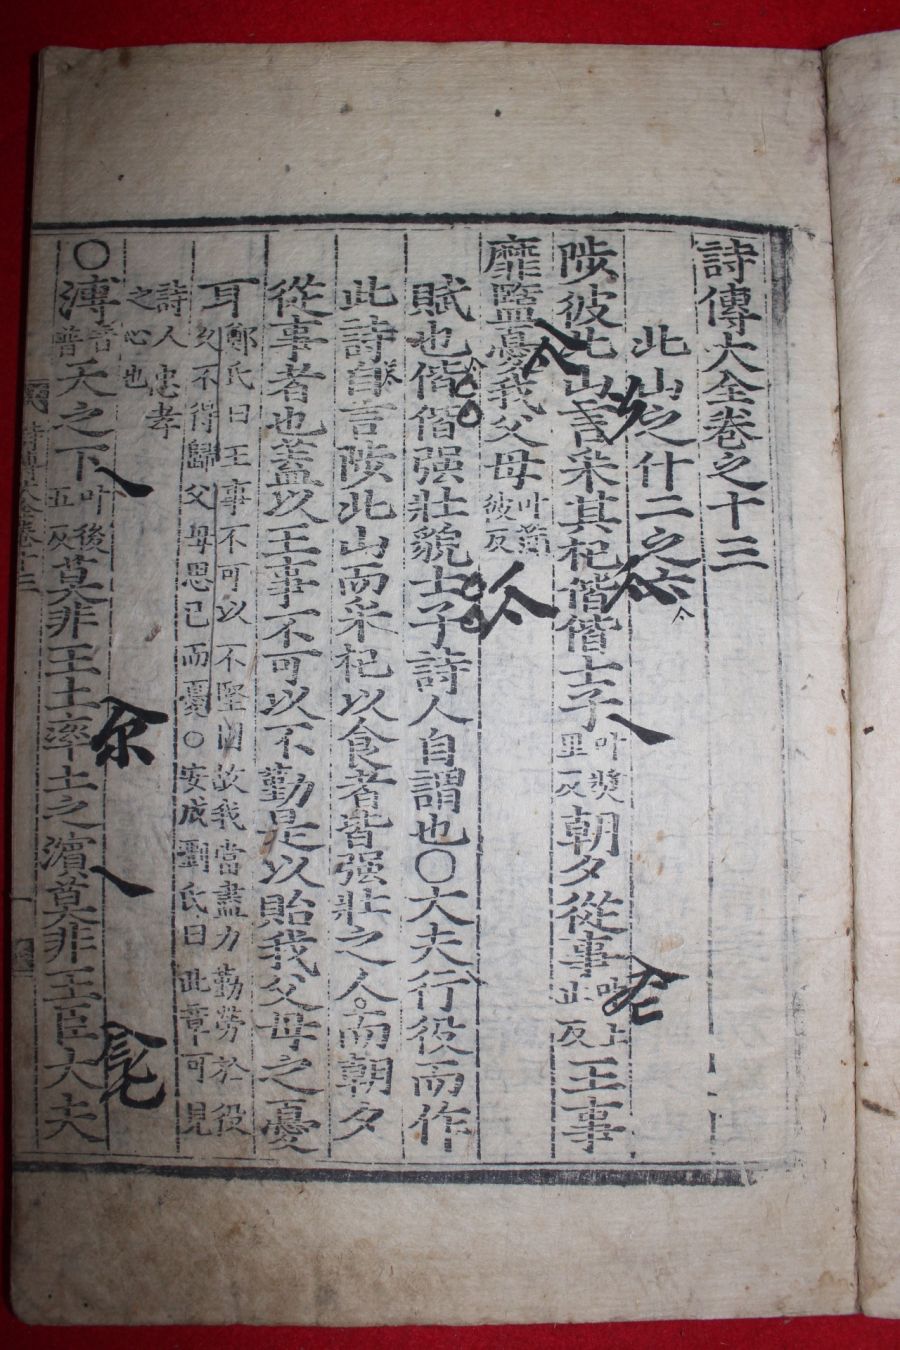 詩傳大全卷之十三
北山之什二之六
陟彼北山言采其杞偕偕士子叶奬里反朝夕從事叶上止反王事
靡盬憂我父母叶滿彼反
賦也偕偕强壯貌士子詩人自謂也○大夫行役而作
此詩自言陟北山而采杞以食者皆强壯之人而朝夕
從事者也蓋以王事不可以不勤是以貽我父母之憂
耳鄭氏曰王事不可以不堅固故我當盡力勤勞於役
久不得歸父母思已而憂○安成劉氏曰此章可見
詩人忠孝
之心也
○溥音普天之下叶後五反莫非王土率土之濱莫非王臣大夫
詩傳大全卷十三
一